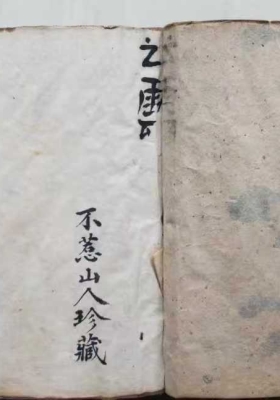 之雲
不惹山人珍藏